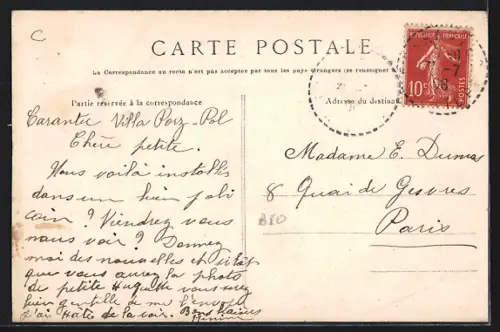 C
CARTE POSTALE
La Correspondance au recto n'est pas acceptée par tous les pays étrangers (se renseigner
Partie réservée à la correspondance
Adresse du destinat
RÉPUBLIQUE FRANÇAISE
10c
POSTES
Carantec Villa Porz-Pol
Chère petite.
Nous voilà installés
dans un bien joli
coin ? Viendrez vous
nous voir ? Donnez
moi des nouvelles et
que vous aurez la photo
de petite Huguette vous
bien gentille de me l'envoyer
j'ai hâte de la voir. Bons baisers
Madame E. Dumas
8 Quai de Gesvres
Paris